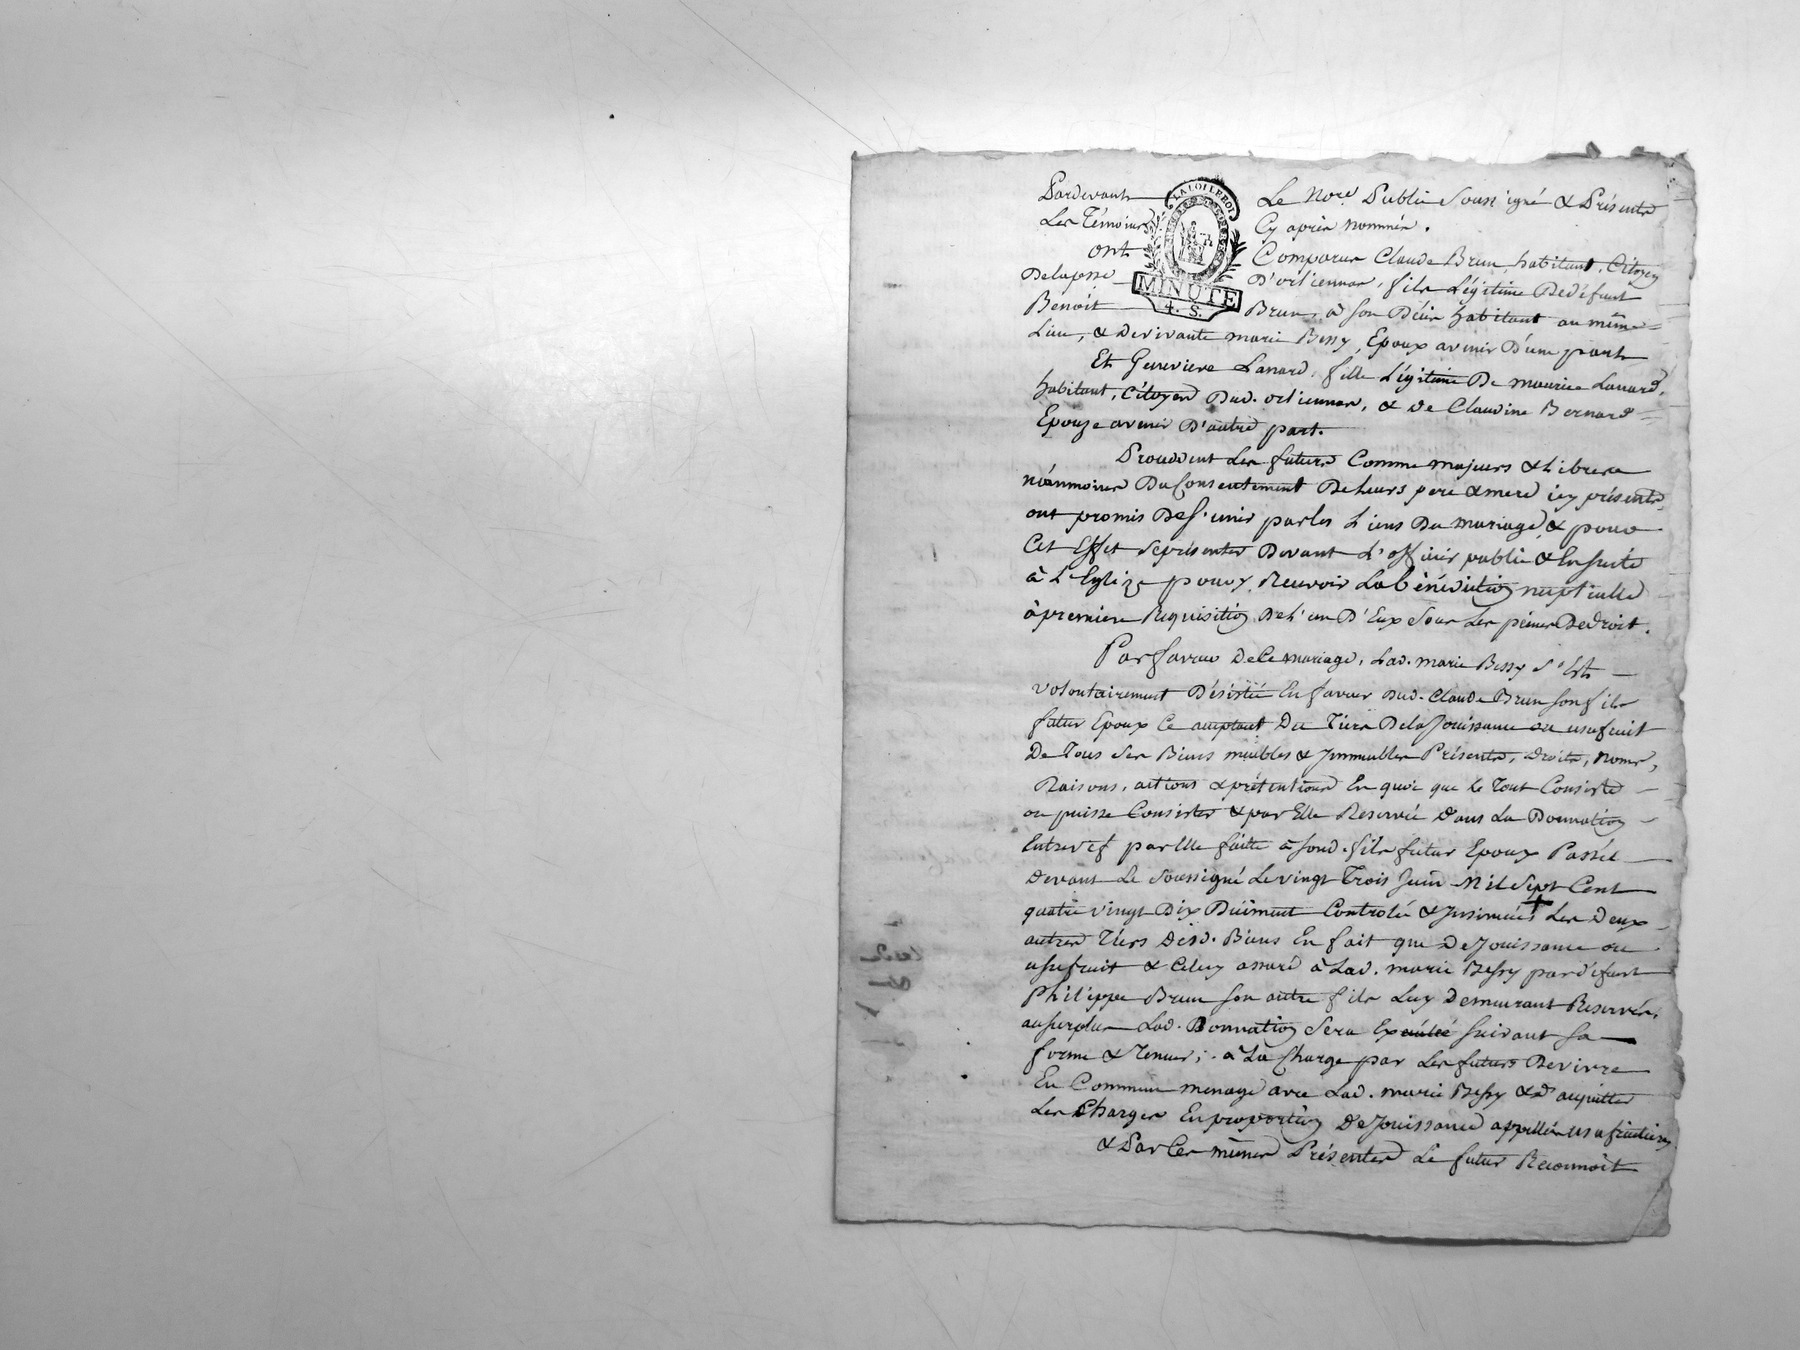 Pardevant Le Nore Public Soussigné & Présents
Les Témoins Cy après nommés.
ont Comparus Claude Brun, habitant, Citoyen
De laparr D'orliennas, fils Légitime De défunt
Benoit Brun, à son Décès habitant au même
Lieu, & De vivante marie Bessy, Epoux avenir D'une part
Et Genevieve Lanard, fille Légitime De maurice Lanard,
habitant, Citoyen Dud. orliennas, & de Claudine Bernard
Epouze avenir D'autre part.
Procedent Les futurs Comme majeurs & Libres &
néanmoins Du Consentement De Leurs pere & mere icy présents,
ont promis De s'unir par les Liens Du mariage, & pour
Cet Effet se présenter Devant L'officier public & Ensuite
à L'Eglize pour y Recevoir La bénédiction nuptialle
à premiere Requisition De L'un D'Eux Sous Les peines De droit.
Par faveur De Ce mariage, Lad. marie Bessy s'Est
volontairement Désistée En faveur Dud. Claude Brun son fils
futur Epoux Ce acceptant Du Tiers De la Jouissance ou usufruit
De Tous Ses Biens meubles & Immeubles Présents, Droits, Noms,
Raisons, actions & prétentions En quoi que Le Tout Consiste
ou puisse Consister & par Elle Reservée dans La Donnation
Entrevif par Elle faitte à sond. fils futur Epoux Passée
devant Le Soussigné Le vingt Trois Juin Mil Sept Cent
quatre vingt Dix Düement Controlée & Insinuée Les Deux
autres Tiers Desd. Biens En fait que De Jouissance ou
usufruit & Celuy assuré à Lad. marie Bessy par défunt
Philippe Brun son autre fils Luy Demeurant Reservés,
au surplus Lad. Donnation Sera Exécutée suivant sa
forme & Teneur; à La Charge par Les futurs De vivre
En Commun menage avec Lad. marie Bessy & d'acquitter
Les Charges En proportion De Jouissance appellées usufruitieres
& Par Ces mêmes Présentes Le futur Reconnoit
LA LOI LE ROI
MINUTE
4. S.